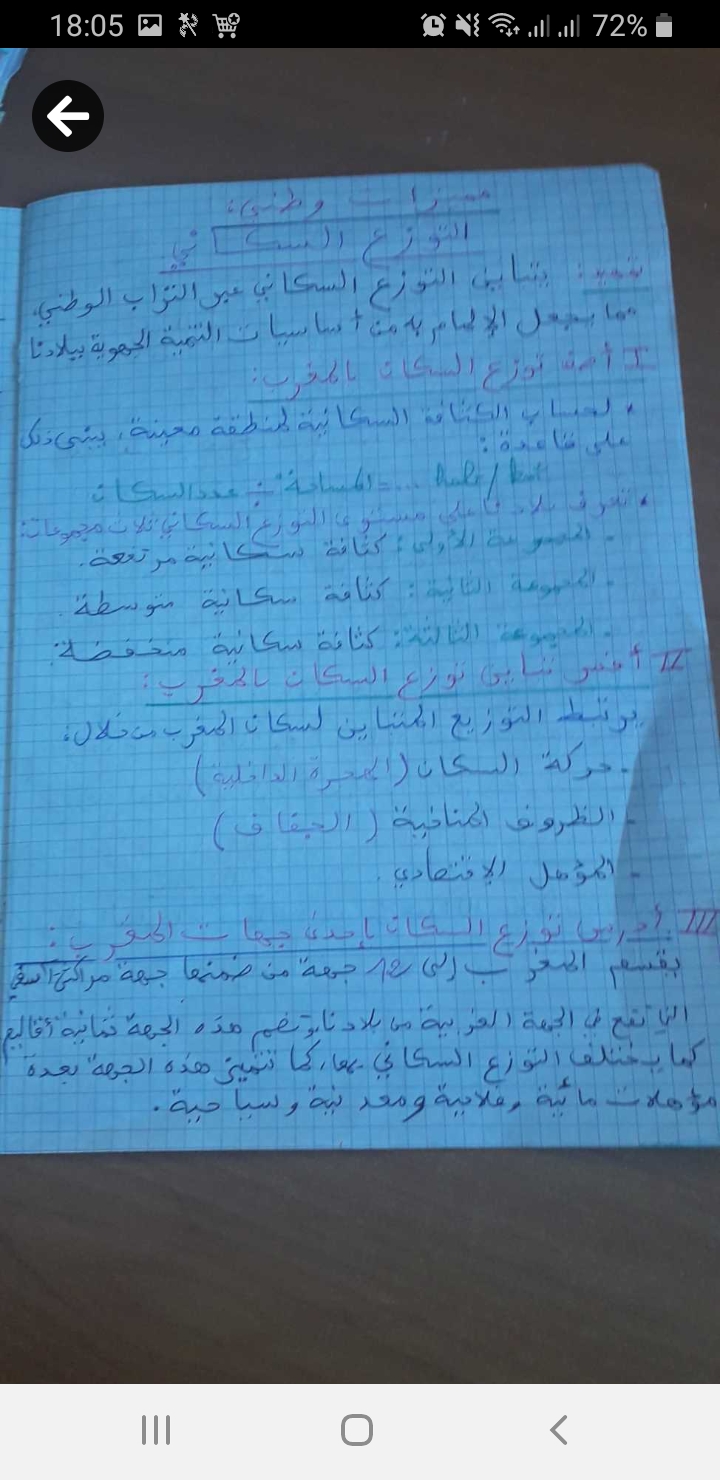 18:05
72%
مميزات وطني:
التوزع السكاني
تمهيد: يتباين التوزع السكاني عبر التراب الوطني،
مما يجعل الإلمام به من أساسيات التنمية الجهوية ببلادنا
I أصف توزع السكان بالمغرب:
• لحساب الكثافة السكانية لمنطقة معينة، ينبغي ذلك
على قاعدة:
عدد السكان ÷ المساحة = ...
• تعرف بلادنا على مستوى التوزع السكاني ثلاث مجموعات:
- المجموعة الأولى: كثافة سكانية مرتفعة.
- المجموعة الثانية: كثافة سكانية متوسطة.
- المجموعة الثالثة: كثافة سكانية منخفضة.
II أفسر تباين توزع السكان بالمغرب:
يرتبط التوزيع المتباين لسكان المغرب من خلال:
- حركة السكان (الهجرة الداخلية)
- الظروف المناخية (الجفاف)
- المؤهل الاقتصادي.
III أدرس توزع السكان بإحدى جهات المغرب:
يقسم المغرب إلى 12 جهة من ضمنها جهة مراكش آسفي
التي تقع في الجهة الغربية من بلادنا وتضم هذه الجهة ثمانية أقاليم
كما يختلف التوزع السكاني بها، كما تتميز هذه الجهة بعدة
مؤهلات مائية وفلاحية ومعدنية وسياحية.